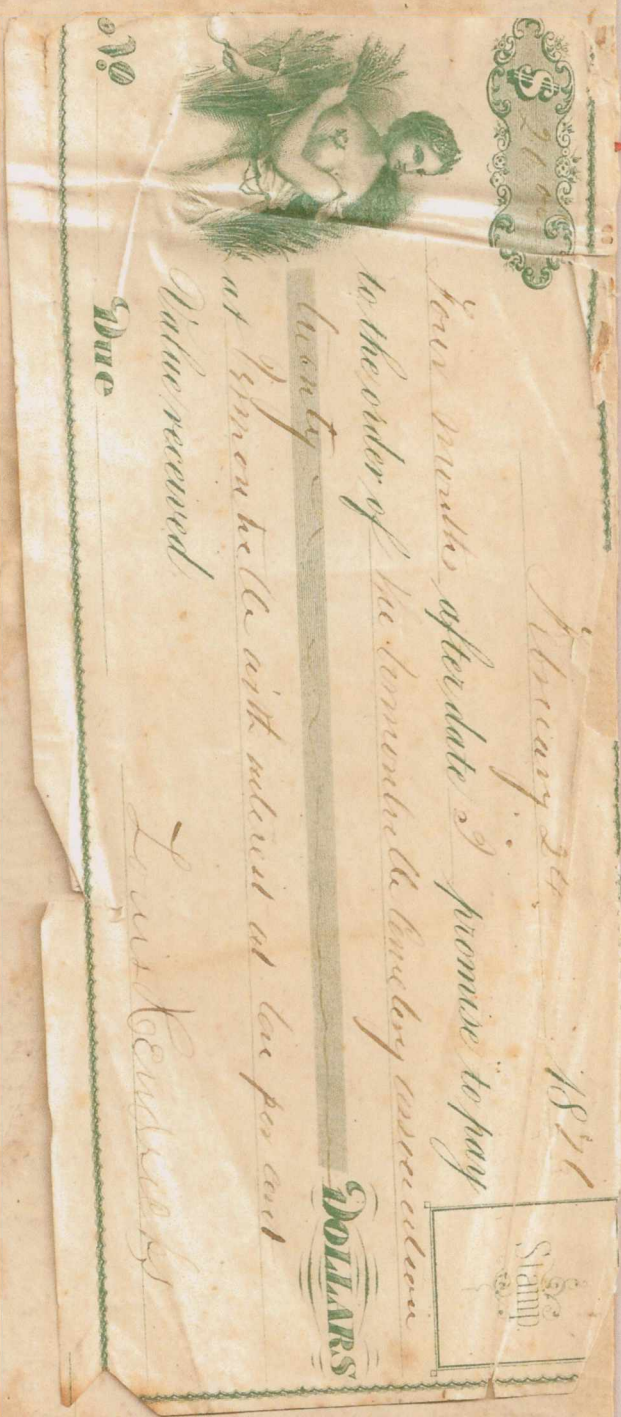 $ 20 00
February 24 1871
Stamp
Four months after date I promise to pay
to the order of the Lemonville Cemetery association
twenty DOLLARS
at Lemonville with interest at ten per cent
Value received
No
Due
Louis Hendricks